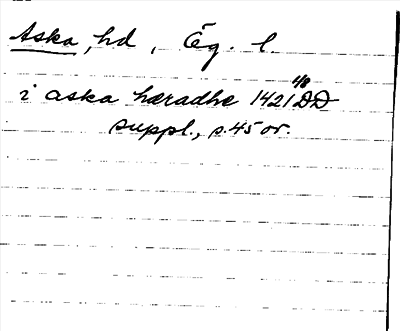 Aska, hd, Ög. l.
i aska hæradhe 1421 4/8 DD
suppl., s. 45 or.